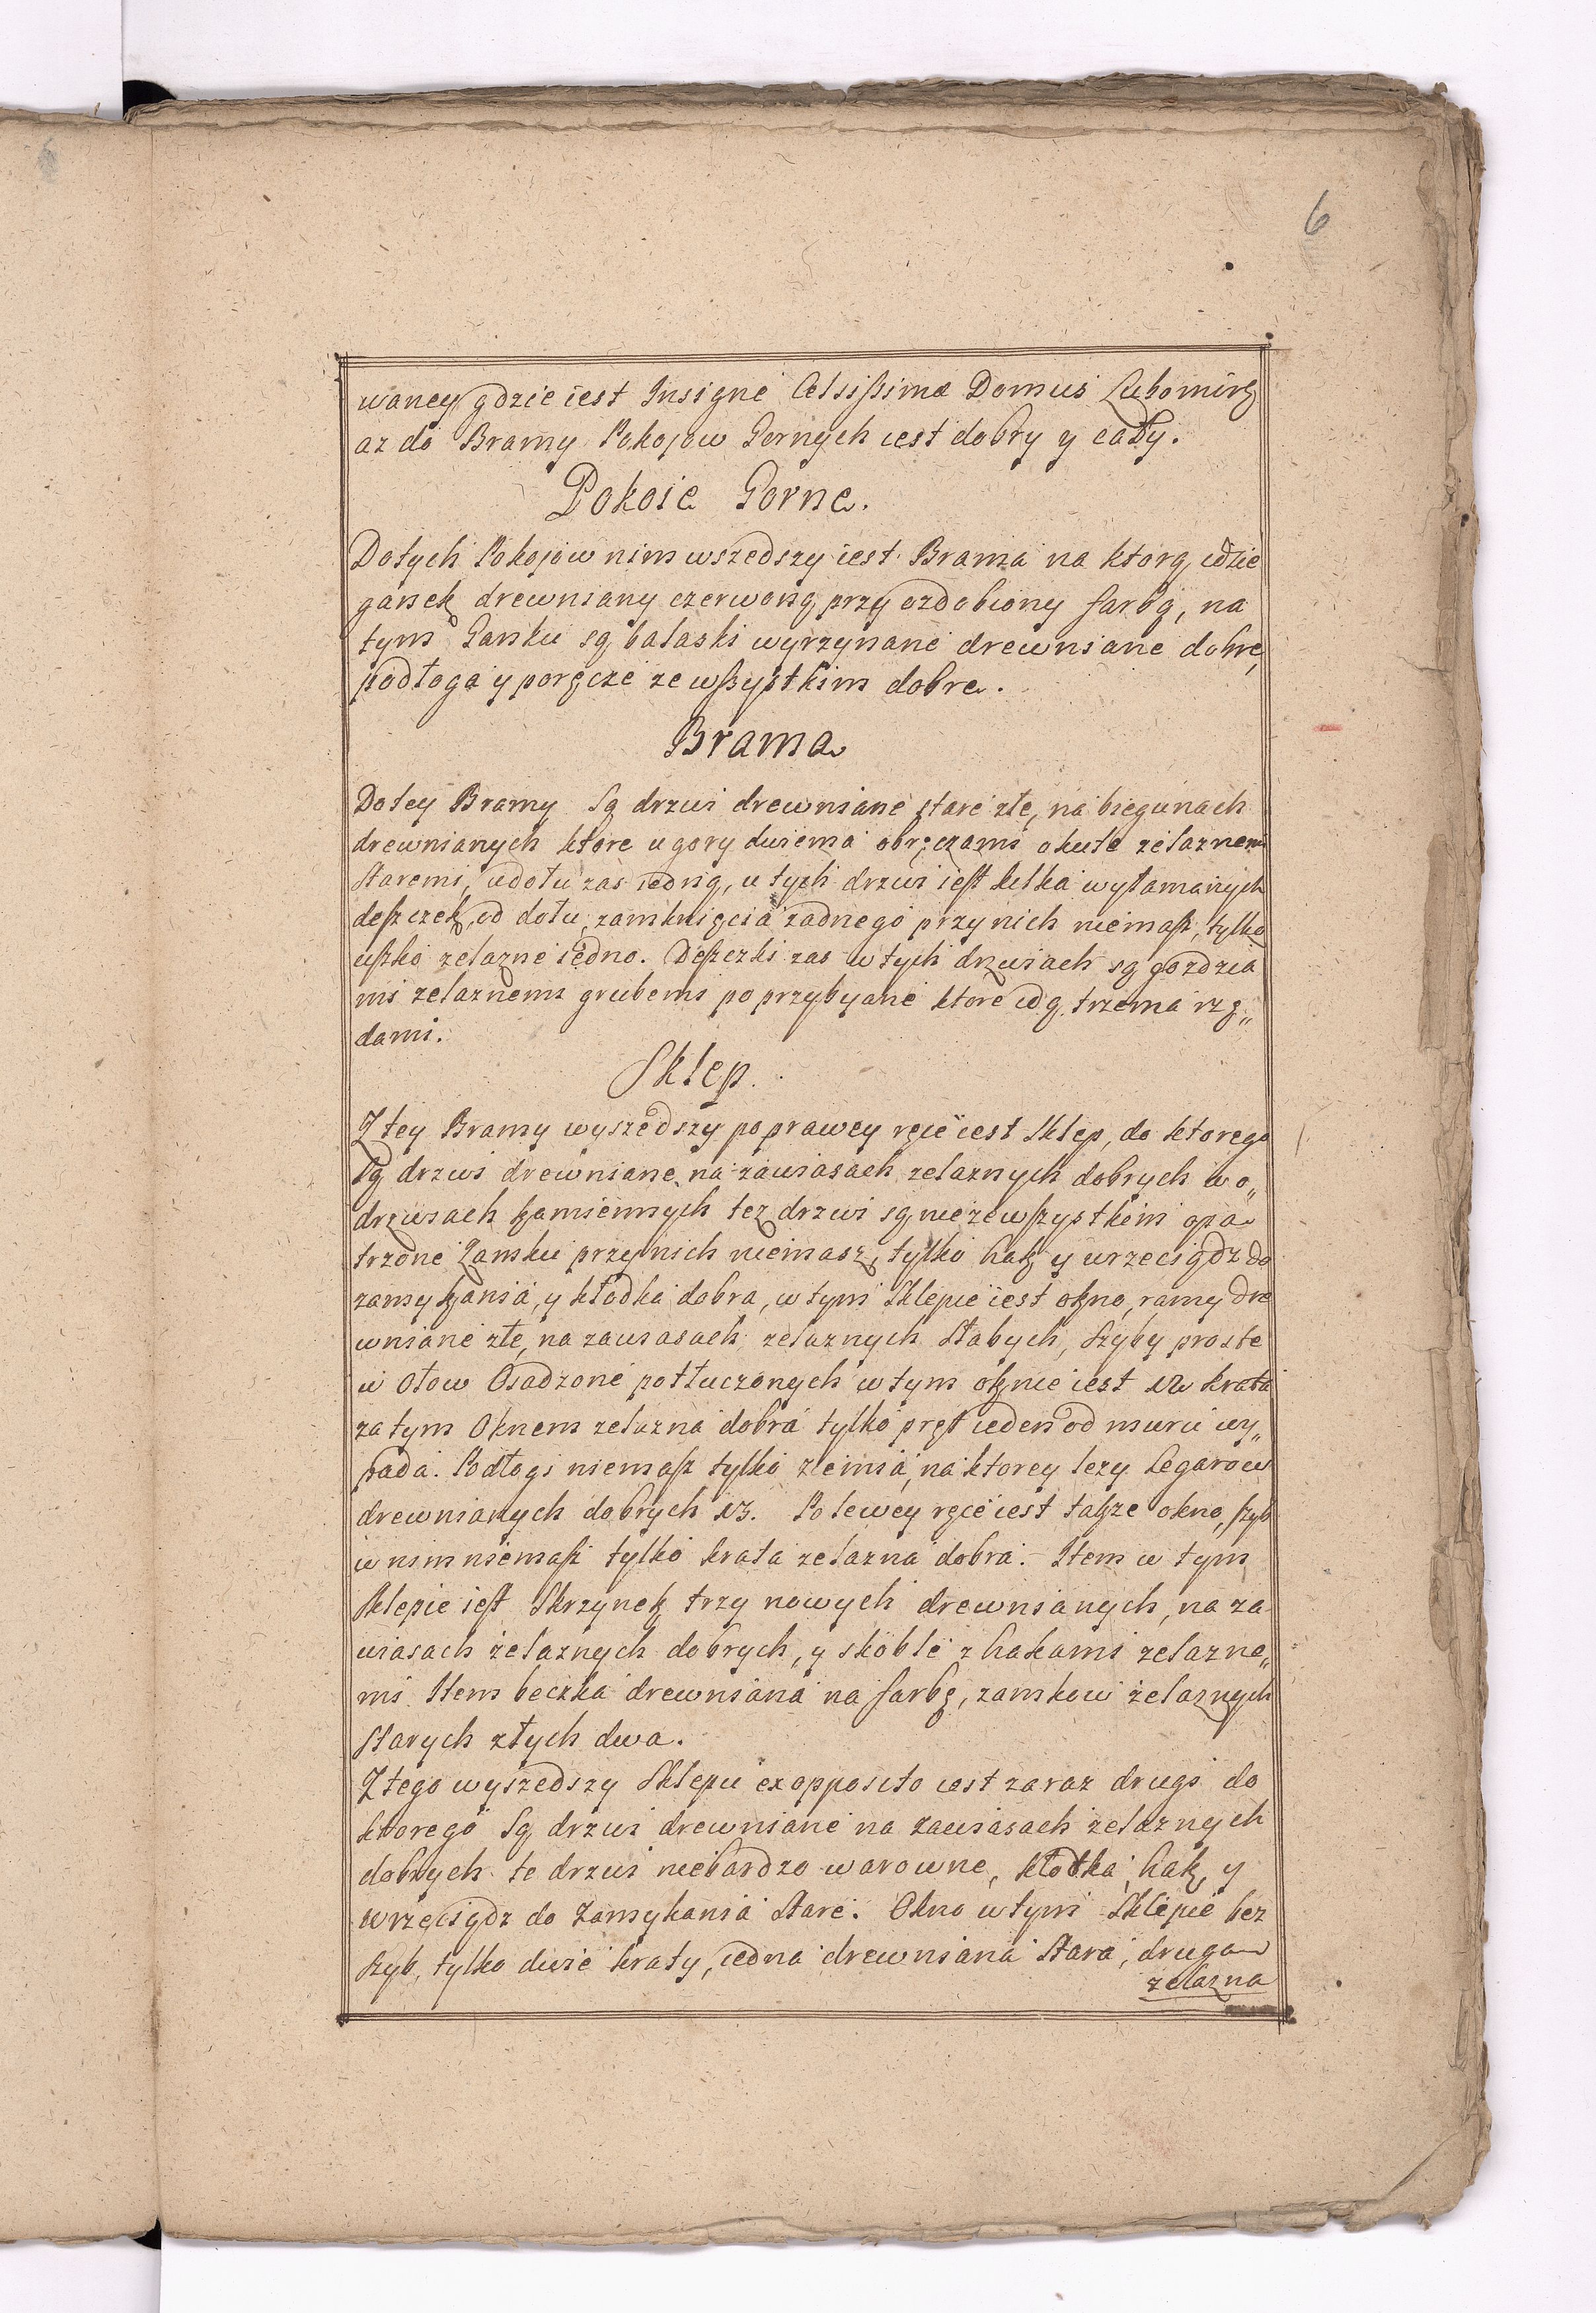 6
waney gdzie iest Insigne Celsissimæ Domus Lubomirs
az do Bramy Pokojow Gornych iest dobry y cały.
Pokoie Gorne.
Dotych Pokojow nim wszedszy iest Brama na ktorą idzie
ganek drewniany czerwoną przyozdobiony farbą, na
tym Ganku są balaski wyrzynane drewniane dobre,
podłoga y poręcze ze wszystkim dobre.
Brama
Dotey Bramy Są drzwi drewniane stare złe, na biegunach
drewnianych ktore ugory dwiema obręczami okute zelaznemi
Staremi, udołu zas iedną, u tych drzwi iest kilka wyłamanych
deszczek od dołu, zamknięcia zadnego przy nich niemasz, tylko
uszko zelazne iedno. Deszczki zas w tych drzwiach są gozdzia
mi zelaznemi grubemi poprzybyane ktore idą trzema rzę„
dami.
Sklep.
Z tey Bramy wyszedszy po prawey ręie iest Sklep, do ktorego
Są drzwi drewniane na zawiasach zelaznych dobrych w o„
drzwiach kamiennych tez drzwi są nieze wszystkim opa
trzone Zamku przy nich niemasz, tylko hak y wrzeciądz do
zamykania, y kłodka dobra, w tym Sklepie iest okno, ramy dre
wniane złe, na zawiasach zelaznych Słabych, Szyby proste
w ołow Osadzone potłuczonych w tym oknie iest 12 krata
za tym Oknem zelazna dobra tylko pręt ieden od muru wy„
pada. Podłogi niemasz tylko ziemia, na ktorey lezy Legarow
drewnianych dobrych 13. Po lewey ręie iest takze okno, szyb
w nim niemasz tylko krata zelazna dobra. Item w tym
Sklepie iest Skrzynek trzy nowych drewnianych, na za
wiasach żelaznych dobrych, y skoble z hakami zelazne„
mi Item beczka drewniana na farbę, zamkow żelaznych
Starych złych dwa.
Z tego wyszedszy Sklepu ex opposito iest zaraz drugi do
ktorego Są drzwi drewniane na zawiasach żelaznych
dobrych te drzwi niebardzo warowne, kłotka, hak, y
wrzeciądz do Zamykania Stare. Okno w tym Sklepie bez
Szyb, tylko dwie kraty, iedna drewniana Stara, druga
zelazna